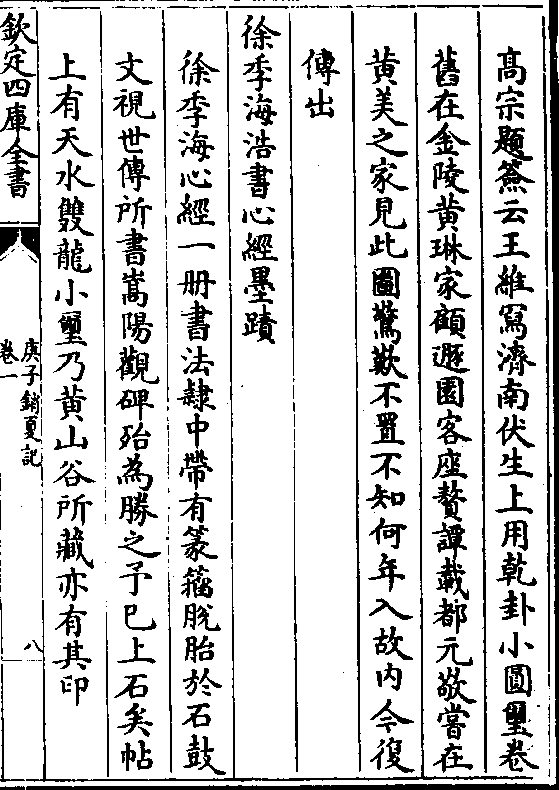 高宗題簽云王維冩濟南伏生上用乾卦小圓璽卷
舊在金陵黄琳家顧遯園客座贅譚載都元敬嘗在
黄美之家見此圖驚歎不置不知何年入故内今復
傳出
徐季海浩書心經墨蹟
徐季海心經一册書法隷中帶有篆籀脱胎於石鼓
文視世傳所書嵩陽觀碑殆為勝之予已上石矣帖
上有天水雙龍小璽乃黄山谷所藏亦有其印
欽定四庫全書
庚子銷夏記
卷一
八